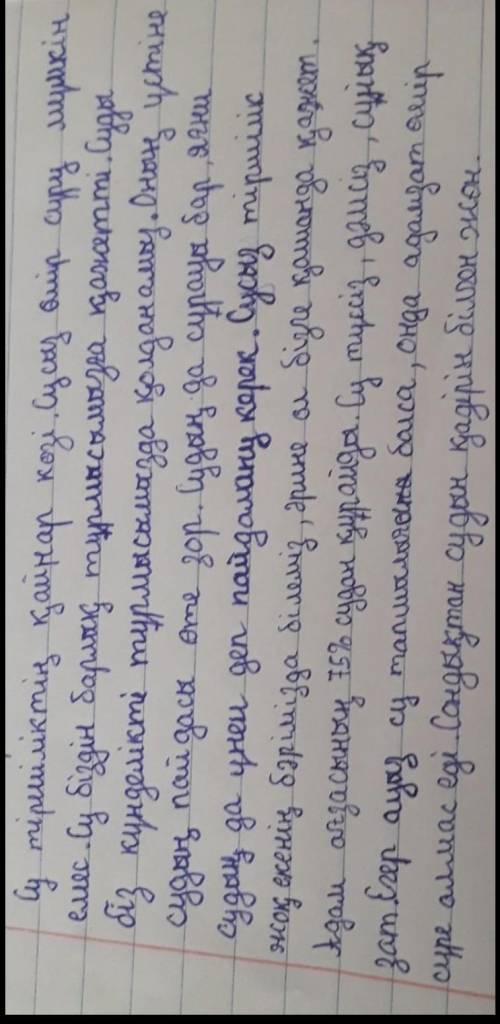 Су тіршіліктің қайнар көзі. Сусыз өмір сүру мүмкін
емес. Су біздің барлық тұрмысымызға қажетті. Суды
біз күнделікті тұрмысымызда қолданамыз. Оның үстіне
судың пайдасы өте зор. Судың да сұрауы бар, яғни
судың да үнем деп пайдалану керек. Сусыз тіршілік
жоқ екенің бәрімізда білеміз, әрине ол бізге қашанда қажет.
Адам ағзасының 75% судан құрайды. Су түссіз, дәмсіз, сұйық
зат. Егер ауыз су тапшылығы болса, онда адамзат өмір
сүре алмас еді. Сондықтан судың қадірін білген жөн.